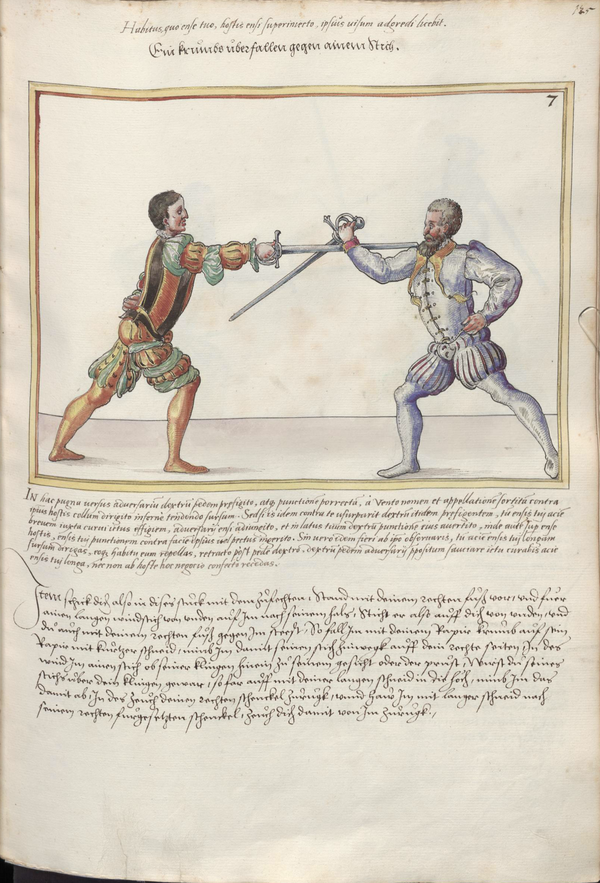 125
Habitus, quo ense tuo, hostis ensi superiniecto, ipsius visum adgredi licebit.
Ein krumbs uberfallen gegen ainem Stich.
7
IN hac pugna versus adversariū dextrū pedem prefigito, atq; punctione porrecta, à Vento nomen et appellatione sortita contra
ipsius hostis collum dirigito inferne tendendo sursum. Sed si is idem contra te usurparit dextrū itidem preponentem, tu ensis tui acie
breviori iuxta curvi ictus effigiem, adversarii ensi adiungito, et in latus tuum dextrū punctione eius avertito, inde autē sup ense
hostis, ensis tui punctionem contra faciē ipsius vel pectus ingerito. Sin vero idem fieri ab ipso observaris, tu acie ensis tui longam
sursum dirigas, eoq; habitu eum repellas, retracto post pede dextro, dextrū pedem adversarij ppositum sauciare ictu curabis acie
ensis tui longa, nec non ab hoste hoc negocio confecto recedas.
Item schick dich also in diser stuck mit dem zufechten, Stand mit deinem rechten fuß vor, und fuer
ainen langen windstich von unden auf Im nach seinem hals, Sticht er also auff dich von unden, und
du auch mit deinem rechten fuß gegen Im steest, So fall Im mit deinem Rapir krumb auf sein
Rapir mit kurtzer schneid, nimb Im damit seinen stich zuruck auff dein rechte seiten, In des
wind Im ainen stich ob seiner klingen hinein zu seinem gesicht oder der prust, Wirst du seines
stichs uber dein klingen gewar, so far auff mit deiner langen schneid in die hoch, nimb Im das
damit ab, In des zeuch deinen rechten schenckel zuruck, unnd haw Im mit langer schneid nach
seinem rechten furgesetzten schenckel, zeuch dich damit von Im zuruck.